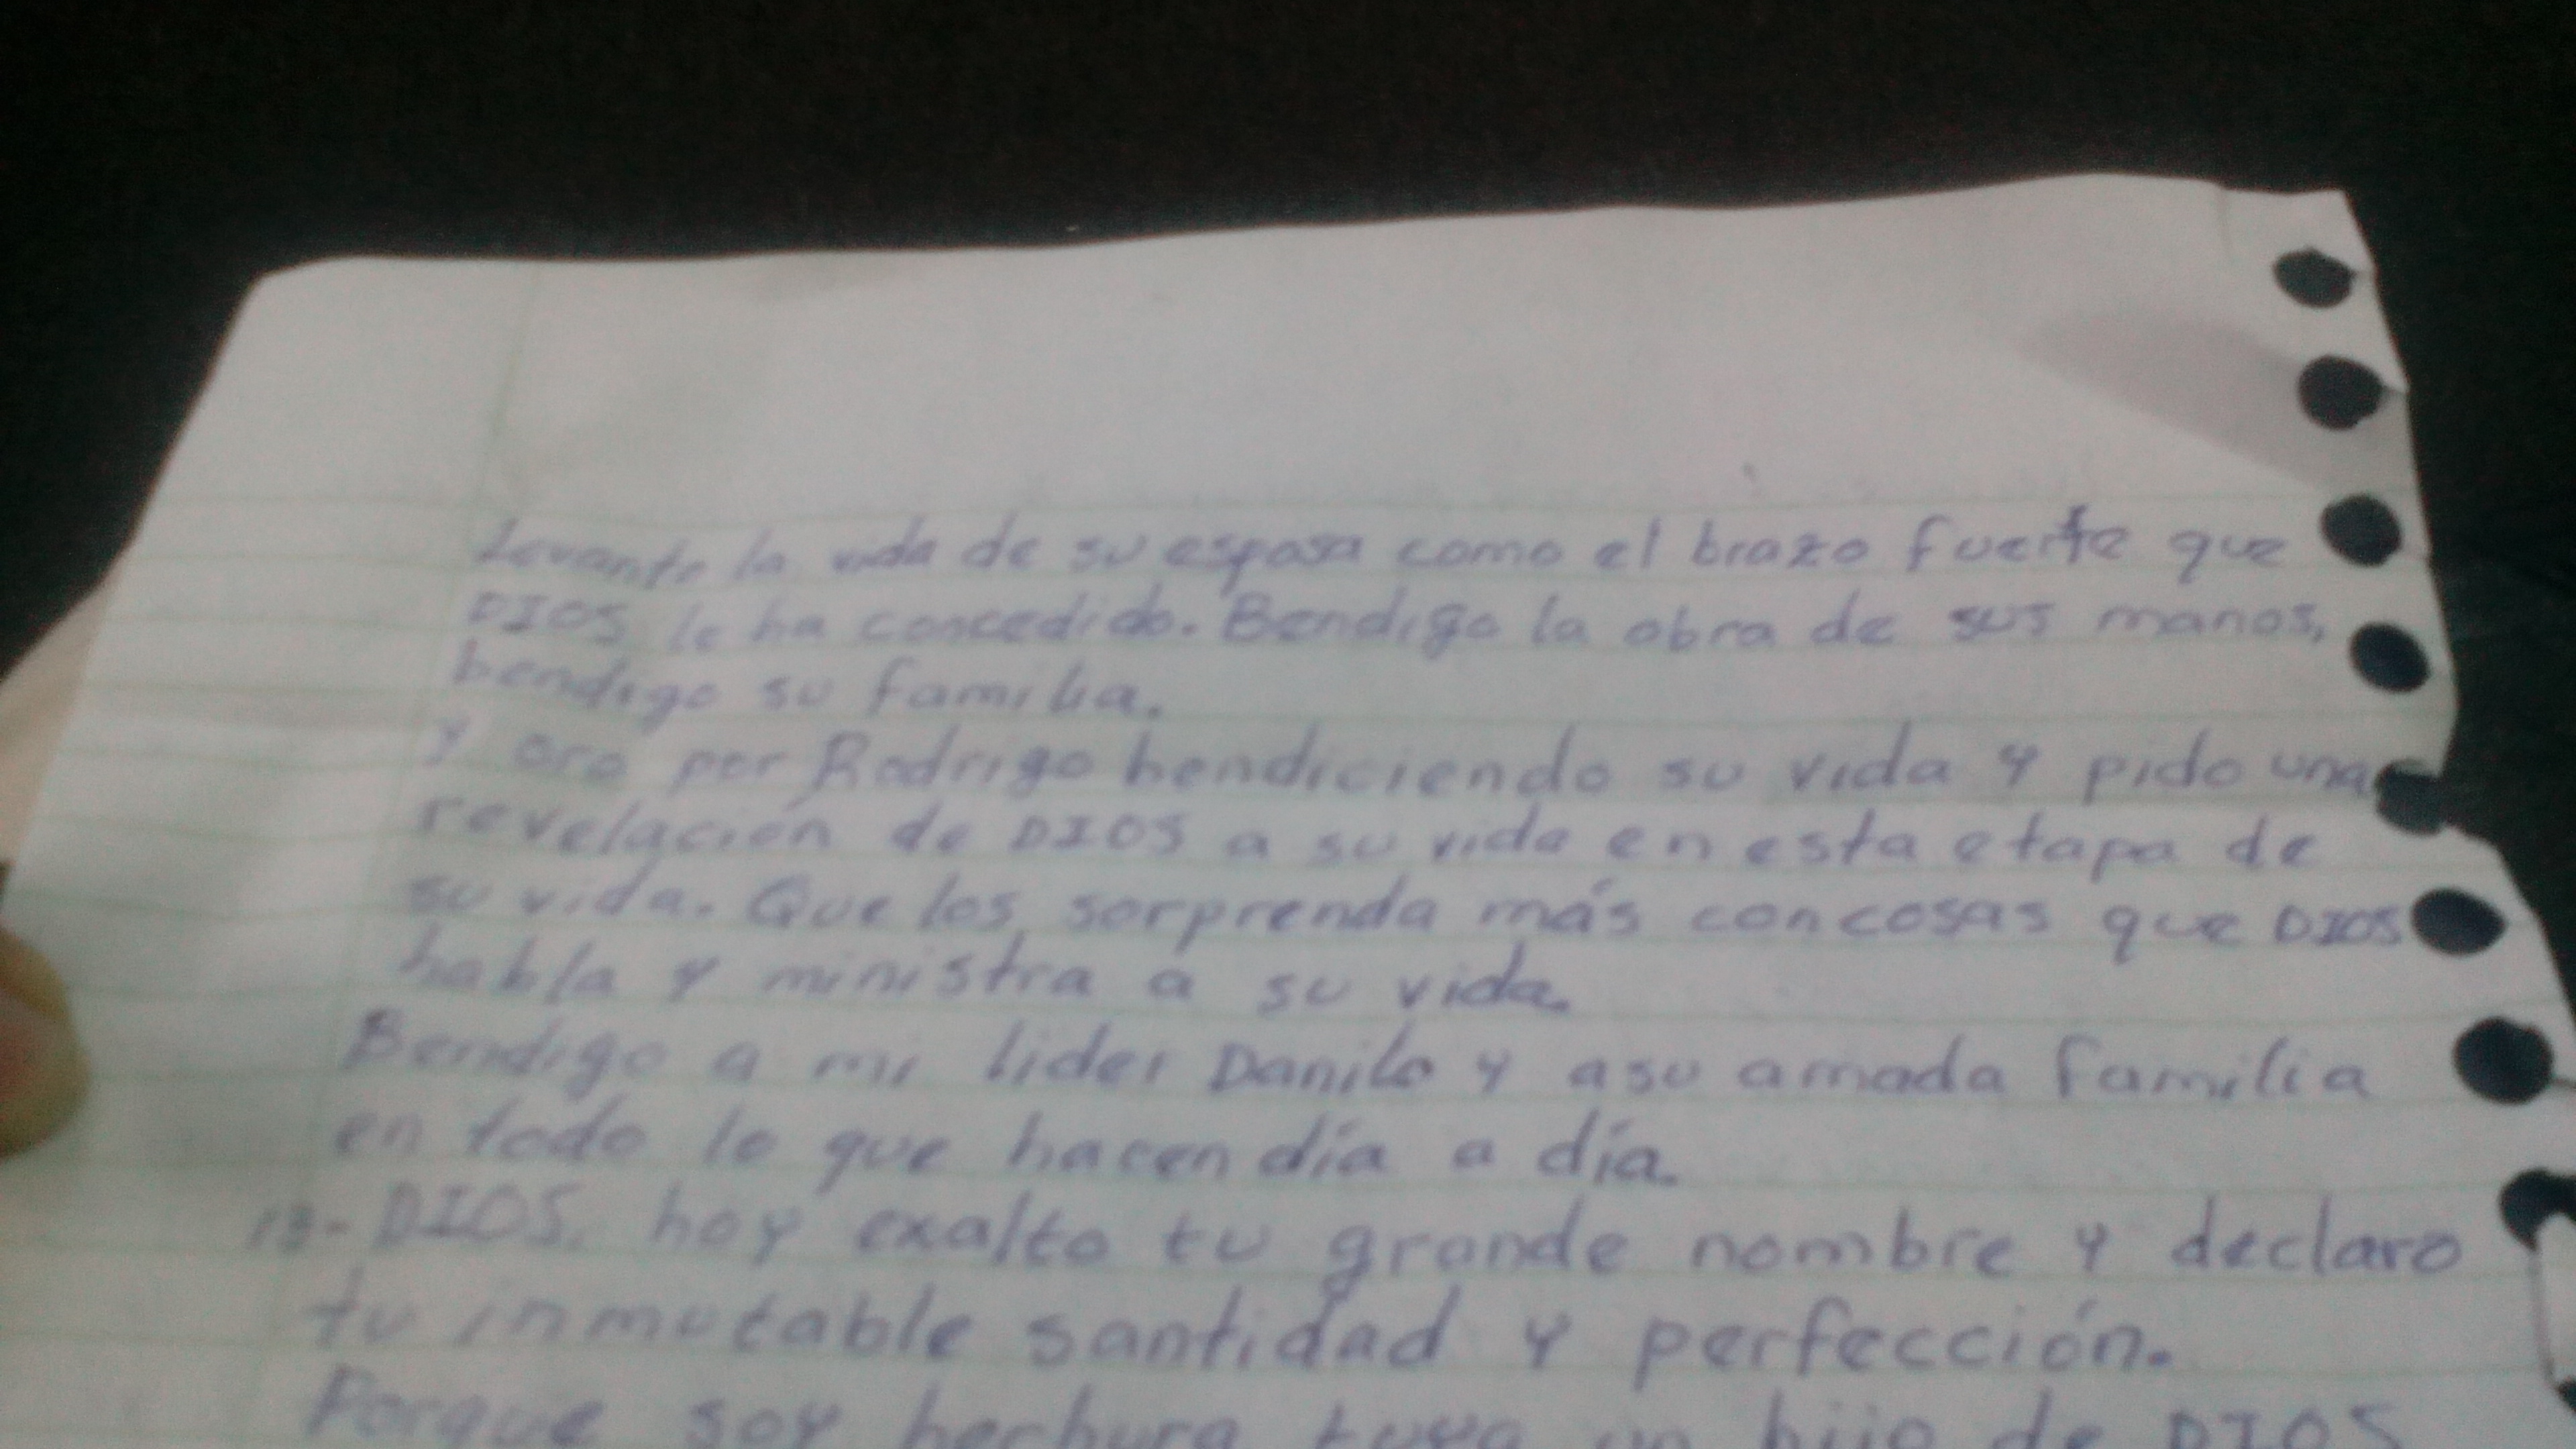 Levante la vida de su esposa como el brazo fuerte que
DIOS le ha concedido. Bendigo la obra de sus manos,
bendigo su familia.
y oro por Rodrigo bendiciendo su vida y pido una
revelación de DIOS a su vida en esta etapa de
su vida. Que los sorprenda más con cosas que DIOS
habla y ministra a su vida.
Bendigo a mi lider Danilo y a su amada familia
en todo lo que hacen día a día.
13- DIOS, hoy exalto tu grande nombre y declaro
tu inmutable santidad y perfección.
Porque soy hechura tuya un hijo de DIOS